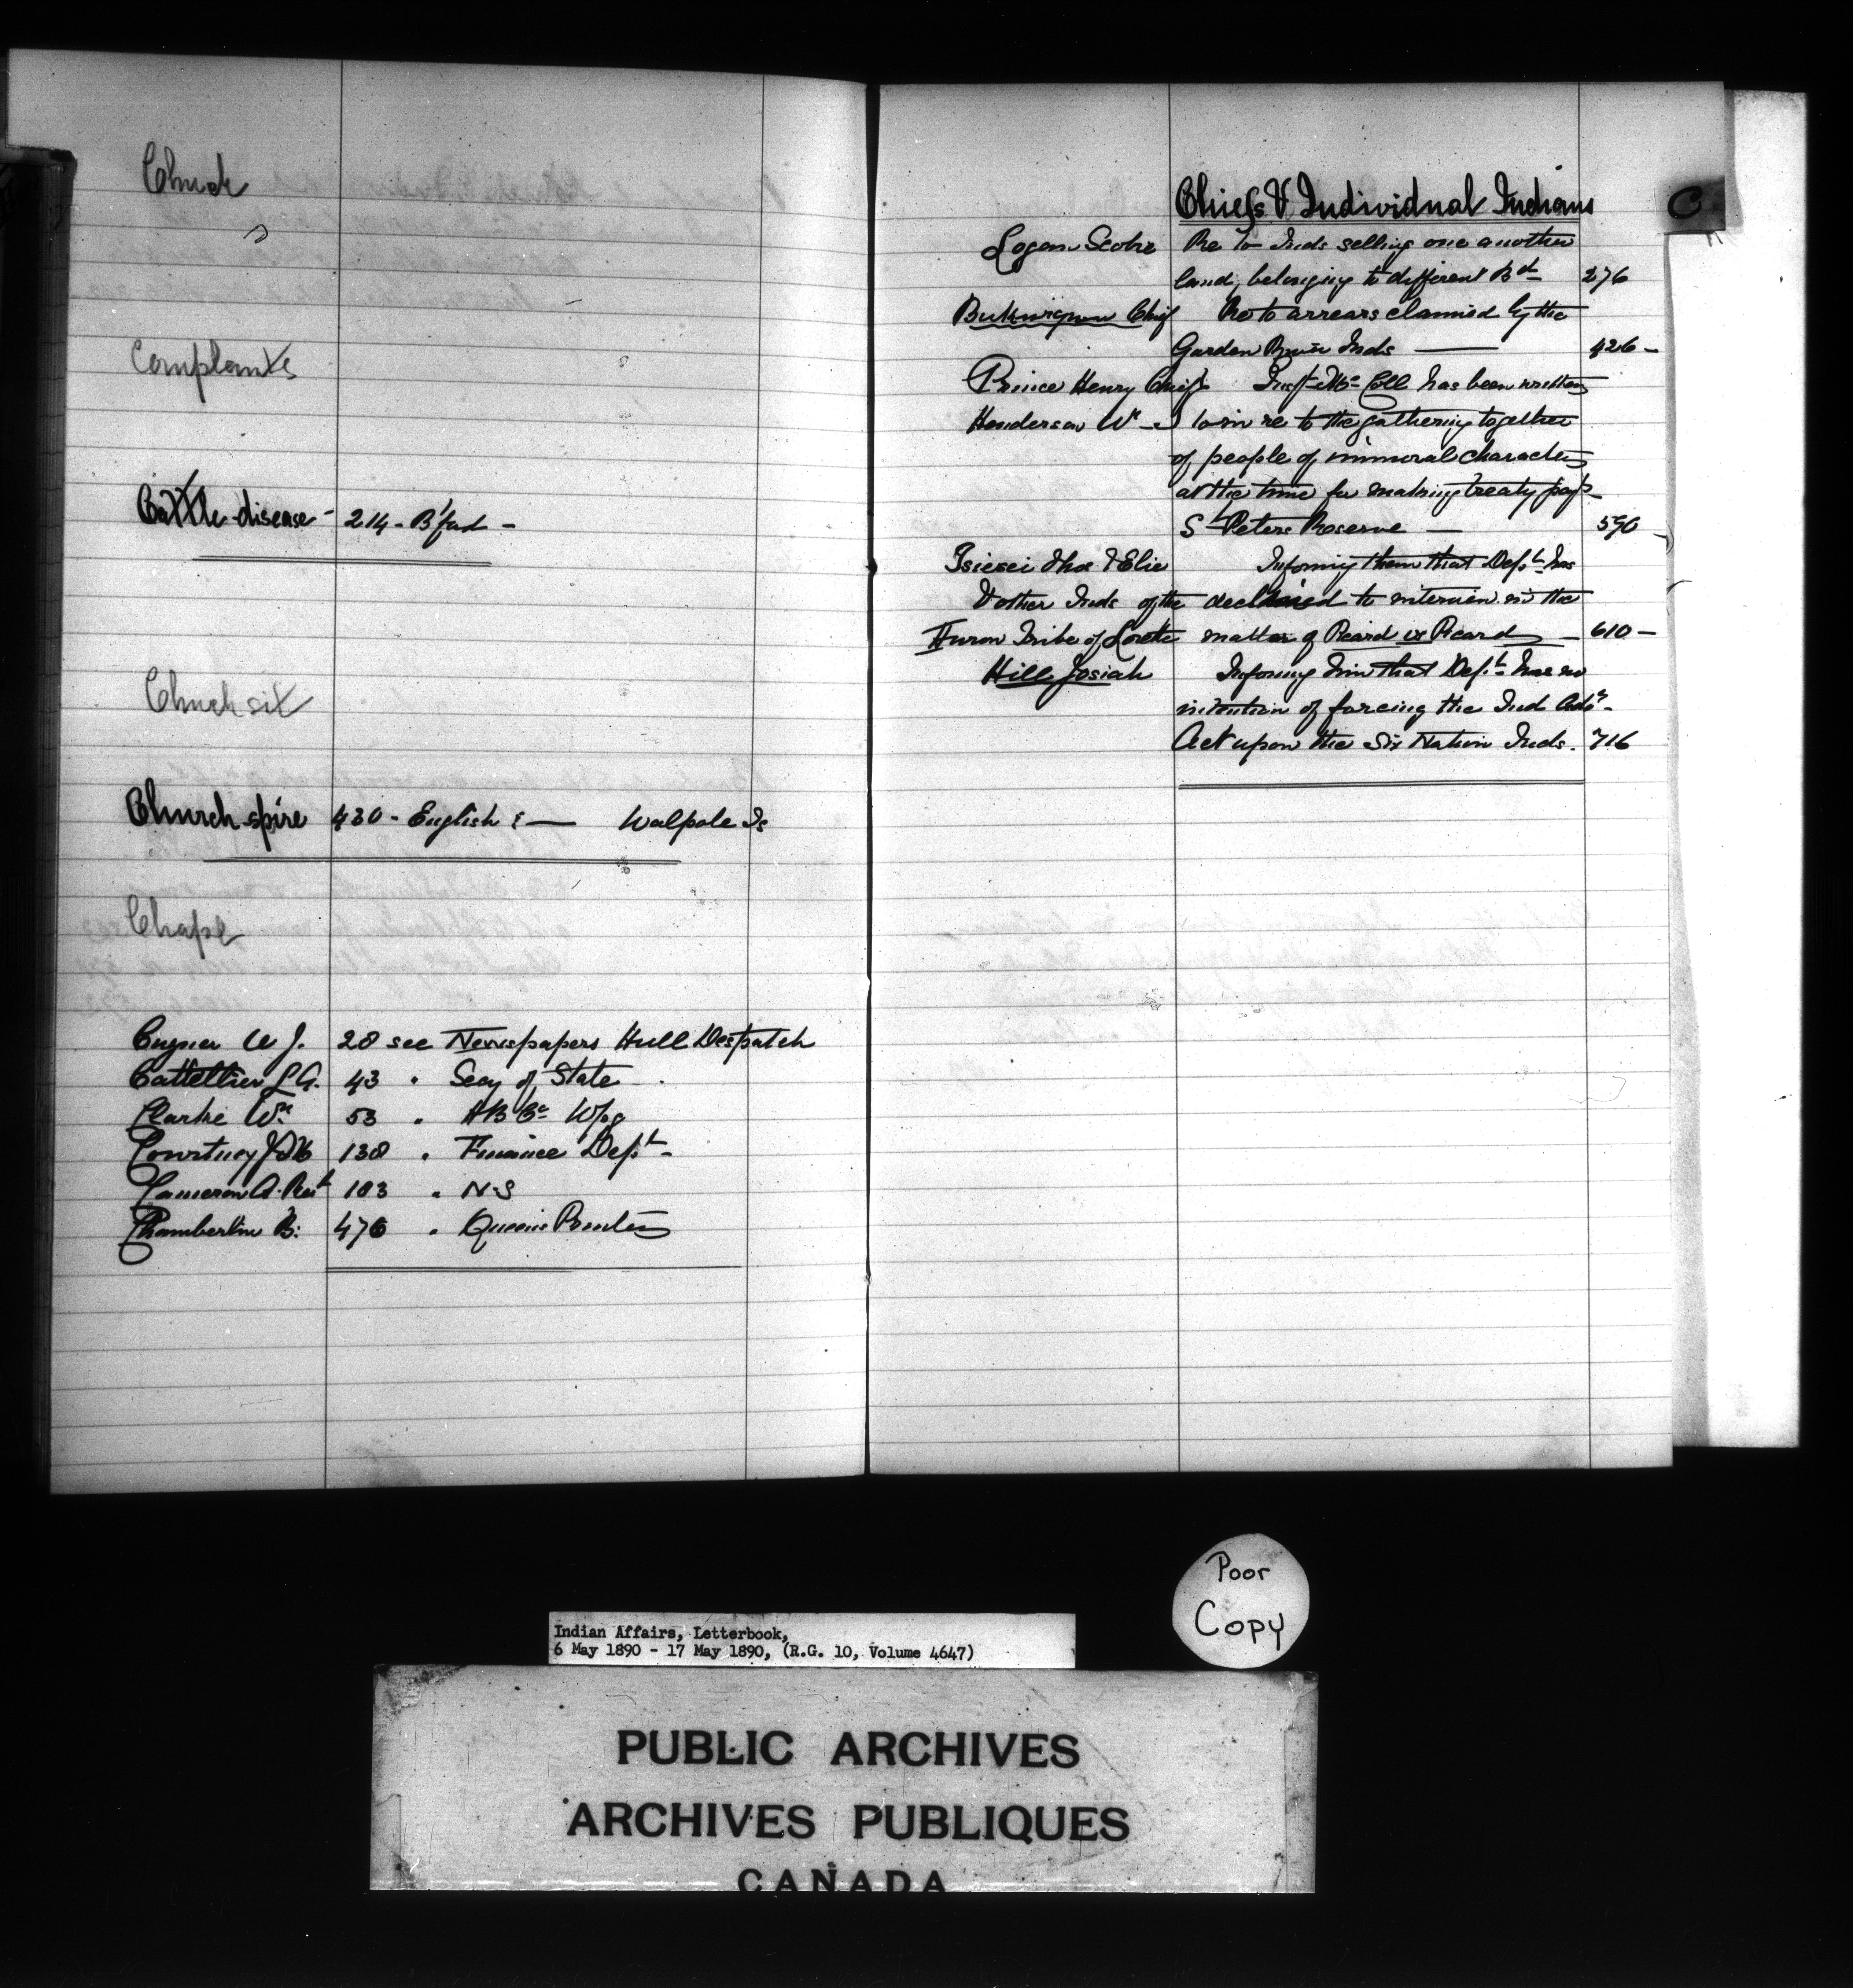 Church
Complants
Cattle disease - 214 - B'ford -
Church sit
Church spire 430 - English : — Walpole Is
Chapl
W J. 28 see Newspapers Hull Despatch
Cattellier L A. 43 " Secy of State
Clarke Wm 53 " H B Co Wpg
Courtney J M 138 " Finance Dept -
Cameron A. Revt 103 " N.S
Chamberlin B. 476 " Queens Printer
Chiefs & Individual Indians
C
Logan Scobie Re to Inds selling one another
land, belonging to different Bds 276
Chief Re to arrears claimed by the
Garden River Inds — 426 -
Prince Henry Chief Inspt McColl has been written
Henderson Wm to in re to the gathering together
of people of immoral character
at the time for making treaty payts
St Peters Reserve — 590
Tsiesei Thos & Elie Informing them that Dept has
& other Inds of the declined to intervien in the
Huron Tribe of Lorette matter of Picard vs Picard — 610 —
Hill Josiah Informing him that Dept has no
intention of forcing the Ind Adv.
Act upon the Six Nation Inds. 716
Poor
Copy
Indian Affairs, Letterbook,
6 May 1890 - 17 May 1890, (R.G. 10, Volume 4647)
PUBLIC ARCHIVES
ARCHIVES PUBLIQUES
CANADA